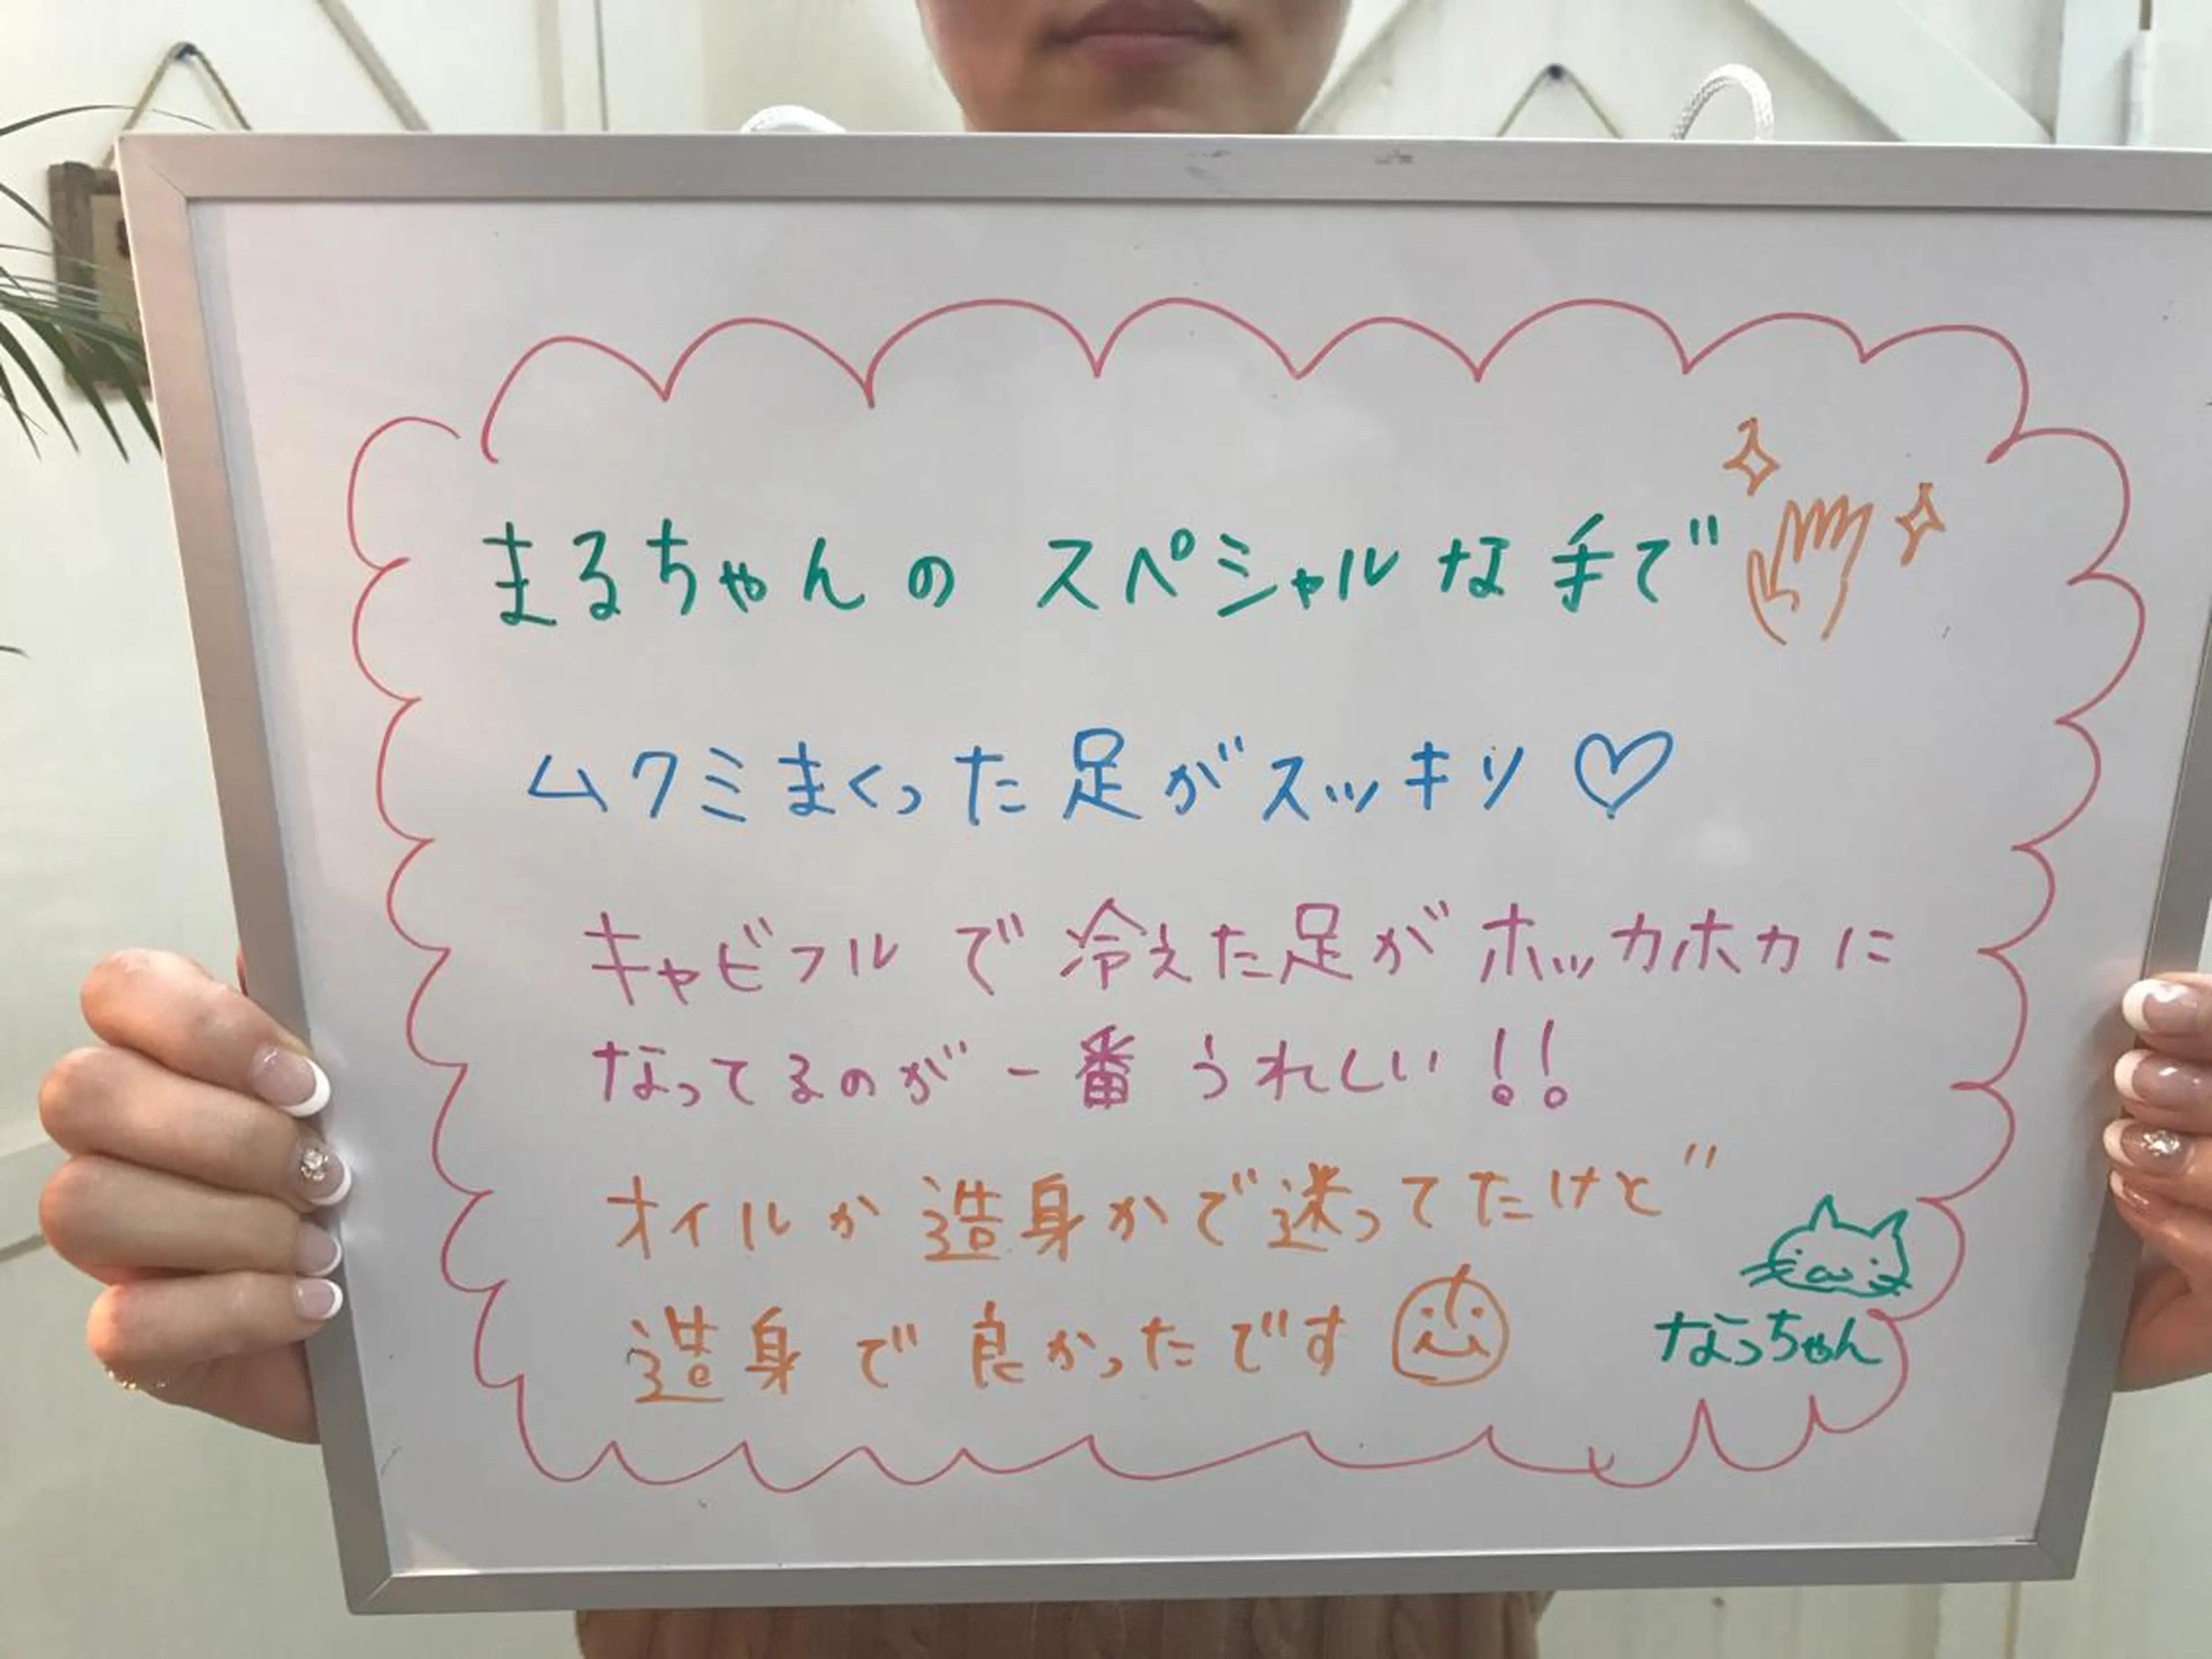 まるちゃんの スペシャルな手で
ムクミまくった足がスッキリ♡
キャビフルで冷えた足がホッカホカに
なってるのが一番うれしい!!
オイルか造身かで迷ってたけど
造身で良かったです
なっちゃん